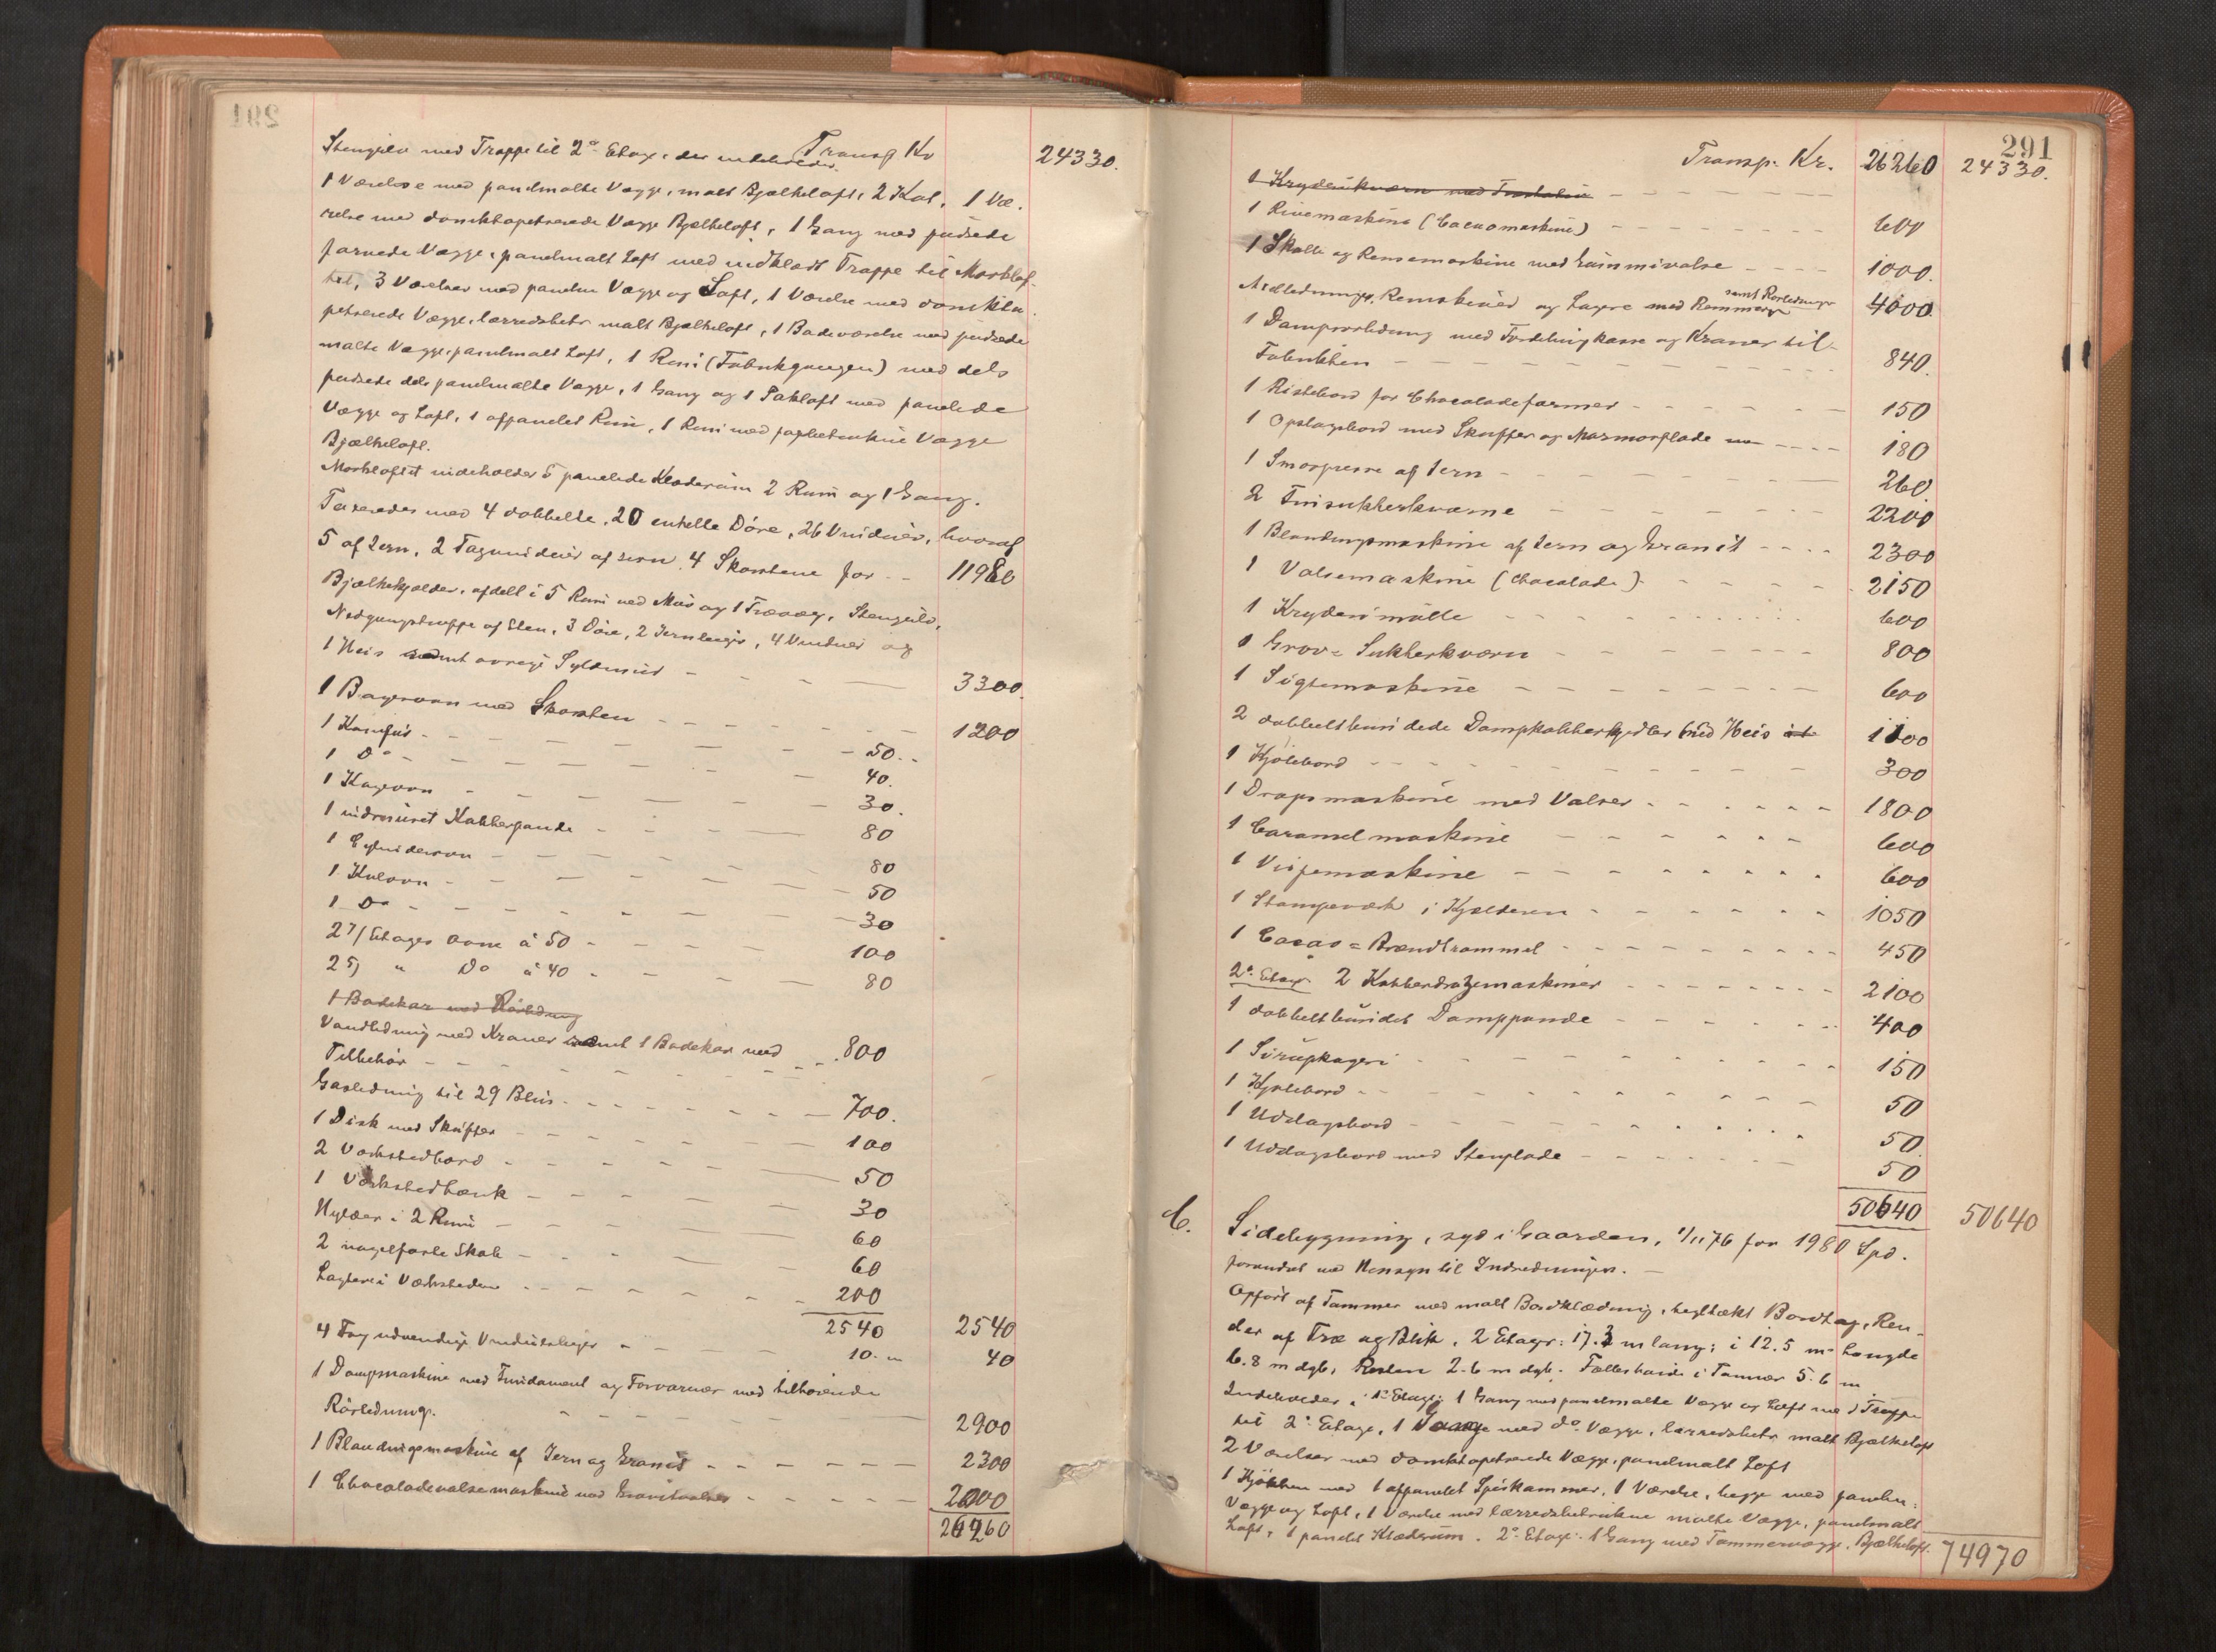 Transp Kr 24330.
Stengulv med Trappe til 2den Etage, der indeholder
1 Værelse med panelmalte Vægge, malt Bjælkeloft, 2 Kot, 1 Væ-
relse med donsktapetserede Vægge Bjælkeloft, 1 Gang med pudsede
farvede Vægge, panelmalt Loft med indklædt Trappe til Mørklof-
tet, 3 Værelser med panelede Vægge og Loft, 1 Værelse med donskta-
petserede Vægge, lærredsbetr. malt Bjælkeloft, 1 Badeværelse med pudsede
malte Vægge, panelmalt Loft, 1 Rum (Fabrikgangen) med dels
pudsede dels panelmalte Vægge, 1 Gang og 1 Pakloft med panelede
Vægge og Loft, 1 afpanelet Rum, 1 Rum med papbetrukne Vægge
Bjælkeloft.
Mørkloftet indeholder 5 panelede Klæderum 2 Rum og 1 Gang.
Taxeredes med 4 dobbelte, 20 enkelte Döre, 26 Vinduer, hvoraf
5 af Jern, 2 Tagvinduer af Jern. 4 Skorstene for - - 11980
Bjælkekjelder, afdelt i 5 Rum ved Mur og 1 Trævæg, Stengulv,
Nedgangstrappe af Sten, 3 Döre, 2 Jernlemme, 4 Vinduer og
1 Heis samt övrige Syldmur - - - 3300.
1 Bagerovn med Skorsten - - - 1200
1 Komfur - - - 50. -
1 Do - - - 40.
1 Kagovn - - - 30.
1 indmuret Kobberpande - - - 80
1 Cylinderovn - - - 80
1 Kulovn - - - 50
1 Do - - - 30
2 7/ Etages Ovne à 50 - - - 100
2 5) " Do à 40 - - - 80
1 Badekar med Rörledning
Vandledning med Kraner samt 1 Badekar med
Tilbehör - - - 800
Gasledning til 29 Blus - - - 700.
1 Disk med Skuffer - - - 100
2 Værkstedbord - - - 50
1 Værkstedbænk - - - 30
Hylder i 2 Rum - - - 60
2 nagelfaste Skab - - - 60
Lagtere i Værksteder - - - 200
2540 2540
4 Fag udvendige Vindusluger - 10. - 40
1 Dampmaskine med Fundament og Forvarmer med tilhörende
Rörledning. - - - 2900
1 Blandingsmaskine af Jern og Granit - - - 2300
1 Chocoladevalsemaskine med Granitvalser - - - 2000
26260
291
Transp. Kr. 26260 24330.
1 Kryderikværn med Trætabur - - -
1 Rivemaskine (Cacaomaskine) - - - 600
1 Skalle og Rensemaskine med Gummivalse - - - 1000.
Axelledninger, Remskiver og Lagere med Remmer samt Rörledninger 4000
1 Dampvorledning med Fordelingskasse og Kraner til
Fabrikken - - - 840.
1 Ristebord for Chocoladeformer - - - 150
1 Opslagsbord med Skuffer og Marmorplade - - - 180
1 Smörpresse af Jern - - - 260.
2 Finsukkerkværne - - - 2200
1 Blandingsmaskine af Jern og Granit - - - 2300
1 Valsemaskine (Chocolade) - - - 2150
1 Kryderimölle - - - 600
1 Grov- Sukkerkværn - - - 800
1 Sigtemaskine - - - 600
2 dobbeltbundede Dampkobberkjedler med Heis 1100
1 Kjölebord - - - 300
1 Dropsmaskine med Valser - - - 1800
1 Caramelmaskine - - - 600
1 Vispemaskine - - - 600
1 Stampeværk i Kjelderen - - - 1050
1 Cacao-Brændtrommel - - - 450
2den Etage 2 Kobberdragemaskiner - - - 2100
1 dobbeltbundet Damppande - - - 400
1 Sirupkogeri - - - 150
1 Kjölebord - - - 50
1 Udslagsbord - - - 50.
1 Udslagsbord med Stenplade - - - 50
50640 50640
C. Sidebygning, syd i Gaarden, 1/11 76 for 1980 Spd.
forandret med Hensyn til Indredningen. -
Opfört af Tömmer med malt Bordklædning, hegltækt Bordtag, Ren-
der af Træ og Blik, 2 Etager: 17.3 m lang; i 12.5 m Længde
6.8 m dyb, Resten 2.6 m dyb. Fælleshöide i Tömmer 5.6 m
Indeholder i 1ste Etage: 1 Gang med panelmalte Vægge og Loft med Trappe
til 2den Etage, 1 Gang med do Vægge, lærredsbetr. malt Bjælkeloft
2 Værelser med donsktapetserede Vægge, panelmalt Loft
1 Kjökken med 1 afpanelet Spiskammer, 1 Værelse, begge med panelm.
Vægge og Loft, 1 Værelse med lærredsbetrukne malte Vægge, panelmalt
Loft, 1 panelet Klæderum. 2den Etage: 1 Gang med Tömmervægge, Bjælkeloft.
74970